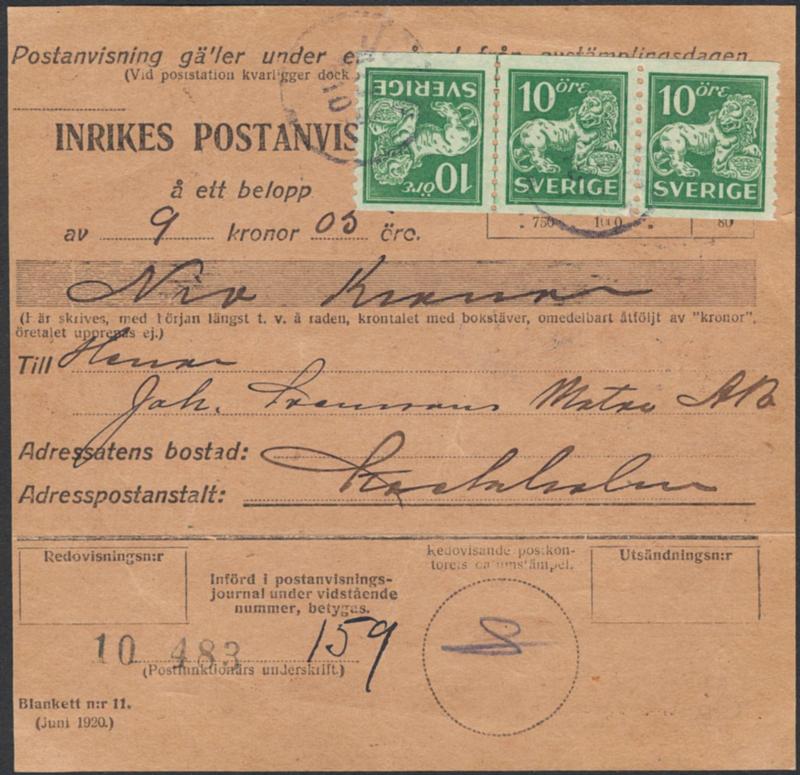 Postanvisning gä'ler under e från avstämplingsdagen.
(Vid poststation kvarligger dock
INRIKES POSTANVIS
SVERIGE
10 öre
10 öre SVERIGE
10 öre SVERIGE
å ett belopp
av 9 kronor 05 öre.
750 1000 80
Nio Kronor
(Här skrives, med början längst t. v. å raden, krontalet med bokstäver, omedelbart åtföljt av "kronor",
öretalet upprepas ej.)
Till Herrar
Joh. Svensons Motor AB
Adressatens bostad:
Adresspostanstalt: Stockholm
Redovisningsn:r
Redovisande postkon-
torets datumstämpel.
Utsändningsn:r
Införd i postanvisnings-
journal under vidstående
nummer, betygas.
10 483 159
(Postfunktionärs underskrift.)
Blankett n:r 11.
(Juni 1920.)